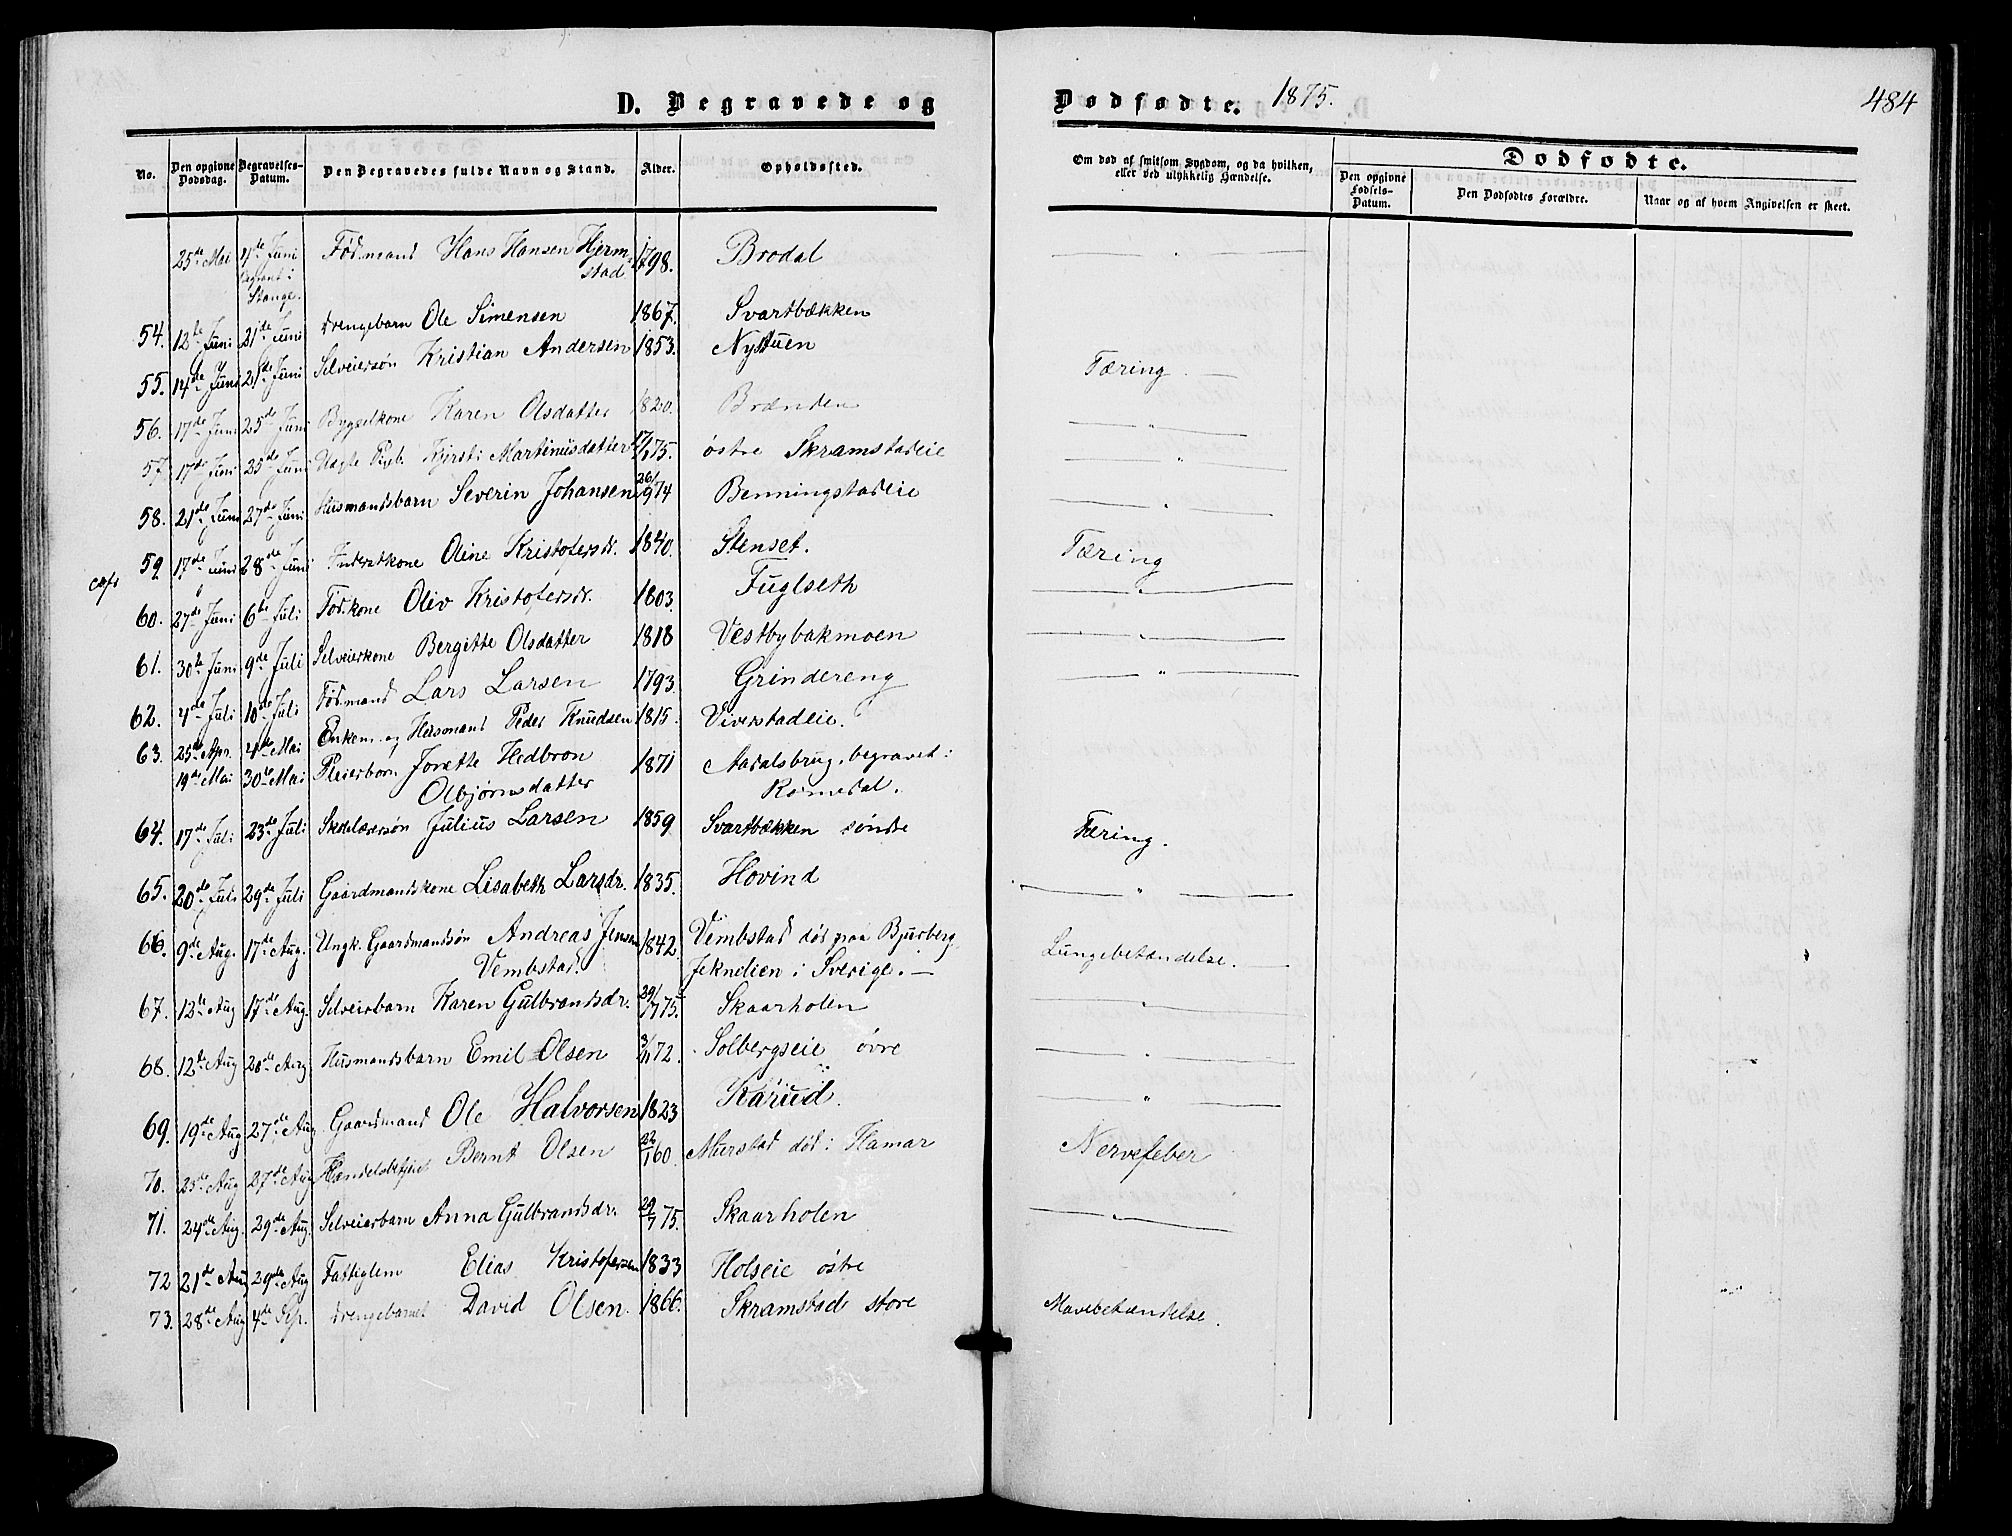 D. Begravede og Dødfødte. 1875. 484
No. Den opgivne Dødsdag. Begravelses-Datum. Den Begravedes fulde Navn og Stand. Alder. Opholdssted. Om død af smitsom Sygdom, og da hvilken, eller ved ulykkelig Hændelse. Dødfødte.
Den opgivne Fødsels-Datum. Den Dødfødtes Forældre. Naar og af hvem Angivelsen er skeet.
25de Mai 4de Juni begravet i Stange. Fødmand Hans Hansen Hjermstad 1798. Brodal — " —
54. 12te Juni 21de Juni Drengebarn Ole Simensen 1867. Svartbækken
55. 14de Juni 21de Juni Selveiersøn Kristian Andersen 1853. Nystuen Tæring. —
56. 17de Juni 25de Juni Bygselkone Karen Olsdatter 1820. Brænden — " —
57. 17de Juni 25de Juni Uægte Pigb. Kjersti Martinusdatter 17/1 75. østre Skramstadeie — " —
58. 21de Juni 27de Juni Husmandsbarn Severin Johansen 26/9 74 Benningstadeie — " —
59 17de Juni 28de Juni Inderstkone Oline Kristofersdr. 1840. Stenset. Tæring
60. 27de Juni 6te Juli Fødkone Oliv Kristofersdr. 1803. Fuglseth — " —
61. 30te Juni 9de Juli Selveierkone Bergitte Olsdatter 1818 Vestbybakmoen — " —
62. 4de Juli 10de Juli Fødmand Lars Larsen 1793. Grindereng — " —
63. 25de Apr. 4de Mai Enkem. og Husmand Peder Knudsen 1815. Viverstadeie.
19de Mai 30te Mai Pleiebarn Jonette Hedbron 1871 Aadalsbrug, begravet i
Olbjørnsdatter Romedal.
64. 17de Juli 23de Juli Skolelærersøn Julius Larsen 1859 Svartbækken søndre Tæring.
65. 20de Juli 29de Juli Gaardmandskone Lisabeth Larsdr. 1835. Hovind — " —
66. 9de Aug. 17de Aug. Ungk. Gaardmandsøn Andreas Jensen 1842 Vembstad død paa Bjurberg, Lungebetændelse. —
Vembstad. i Sverige. —
67. 12te Aug 17de Aug. Selveierbarn Karen Gulbrandsdr. 29/7 75. Skaarholen — " —
68. 12te Aug 20de Aug Husmandsbarn Emil Olsen 3/11 72. Solbergseie øvre — " —
69. 19de Aug 27de Aug Gaardmand Ole Halvorsen 1823 Kårud. — " —
70. 25de Aug 27de Aug Handelsbetjent Bernt Olsen 22/1 60. Alerstad død i Hamar Nervefeber
71. 24de Aug. 29de Aug. Selveierbarn Anna Gulbrandsdr. 29/7 75. Skaarholen — " —
72 21de Aug 29de Aug Fattiglem Elias Kristofersen 1833 Holseie østre
73. 28de Aug 4de Sep. Drengebarnet David Olsen. 1866. Skramstad store Mavebetændelse.